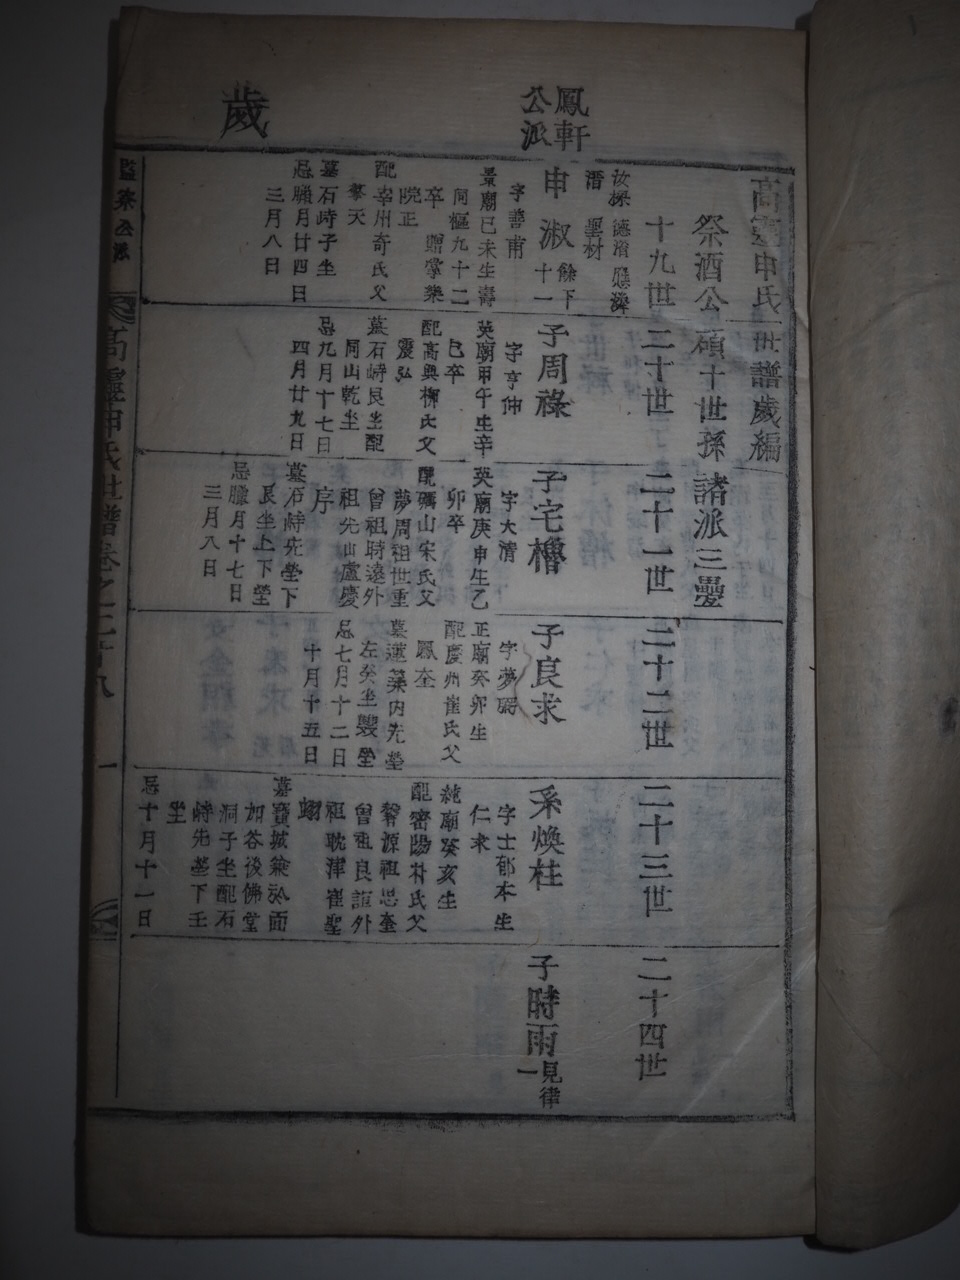 歲
鳳軒
公派
高靈申氏世譜歲編
祭酒公碩十世孫諸派三疊
十九世
二十世
二十一世
二十二世
二十三世
二十四世
汝樑 德濱 應濟
潛 聖材
申淑 餘下十一
字善甫
景廟己未生壽
同樞九十二
卒 贈掌樂
院正
配幸州奇氏父
擎天
墓石峙子坐
忌臘月廿四日
三月八日
子周祿
字亨仲
英廟甲午生辛
巳卒
配高興柳氏父
震弘
墓石峙艮坐配
同山乾坐
忌九月十七日
四月廿九日
子宅櫓
字大清
英廟庚申生乙
卯卒
配礪山宋氏父
夢周祖世重
曾祖時遠外
祖先山盧慶
序
墓石峙先塋下
艮坐上下塋
忌臘月十七日
三月八日
子良求
字夢弼
正廟癸卯生
配慶州崔氏父
鳳奎
墓蓮葉內先塋
左癸坐雙塋
忌七月十二日
十月十五日
系煥柱
字士郁本生
仁求
純廟癸亥生
配密陽朴氏父
馨源祖思奎
曾祖良誼外
祖耽津崔聖
翊
墓寶城兼於面
加谷後佛堂
洞子坐配石
峙先塋下壬
坐
忌十月十一日
子時雨 見律一
監察公派
高靈申氏世譜卷之二十八
一